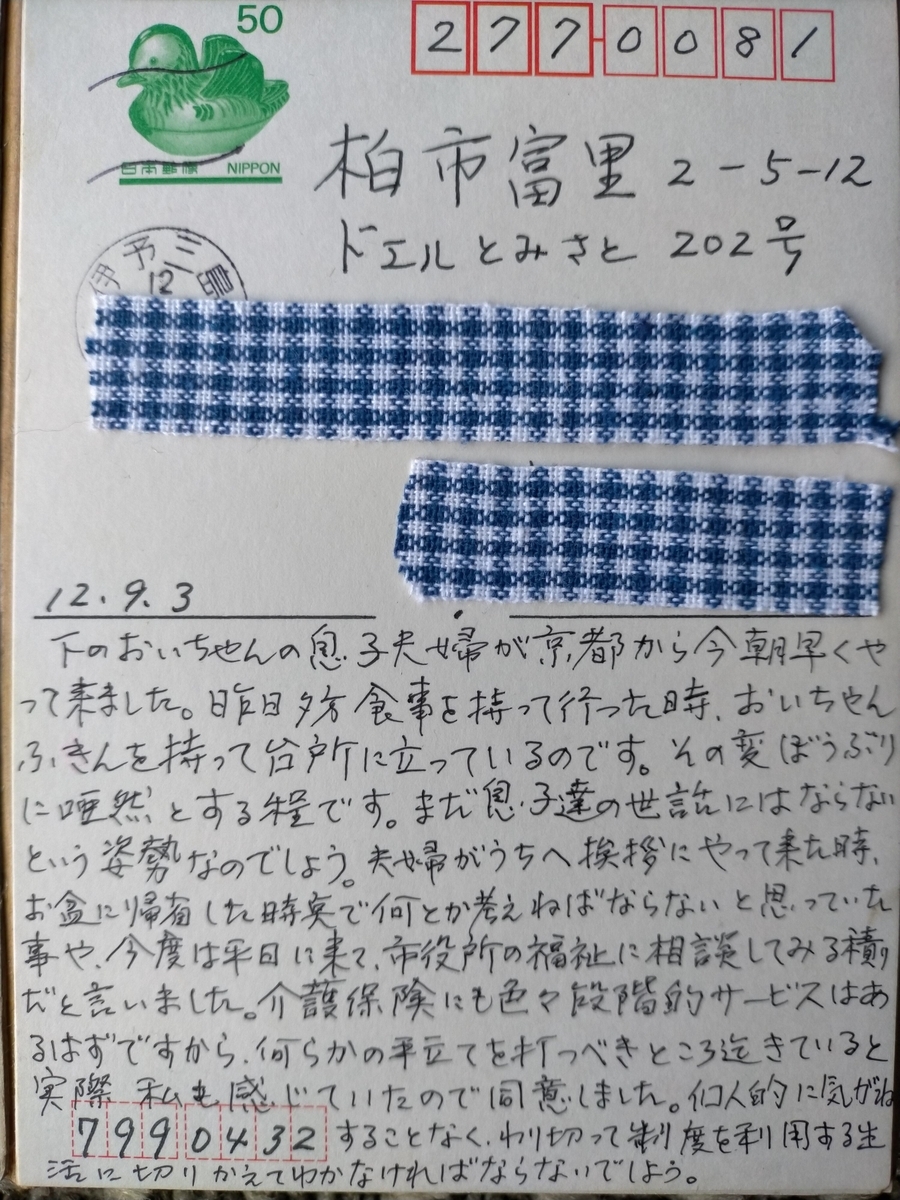 50
日本郵便 NIPPON
277-0081
柏市富里 2-5-12
ドエルとみさと 202号
伊予三島
12
12.9.3
下のおいちゃんの息子夫婦が京都から今朝早くや
って来ました。昨日夕方食事を持って行った時、おいちゃん
ふきんを持って台所に立っているのです。その変ぼうぶり
に唖然とする程です。まだ息子達の世話にはならない
という姿勢なのでしょう。夫婦がうちへ挨拶にやって来た時、
お盆に帰省した時実で何とか考えねばならないと思っていた
事や、今度は平日に来て、市役所の福祉に相談してみる積り
だと言いました。介護保険にも色々段階的サービスはあ
るはずですから、何らかの手立てを打つべきところ迄きていると
実際 私も感じていたので同意しました。個人的に気がね
799 0432 することなく、わり切って制度を利用する生
活に切りかえてわかなければならないでしょう。